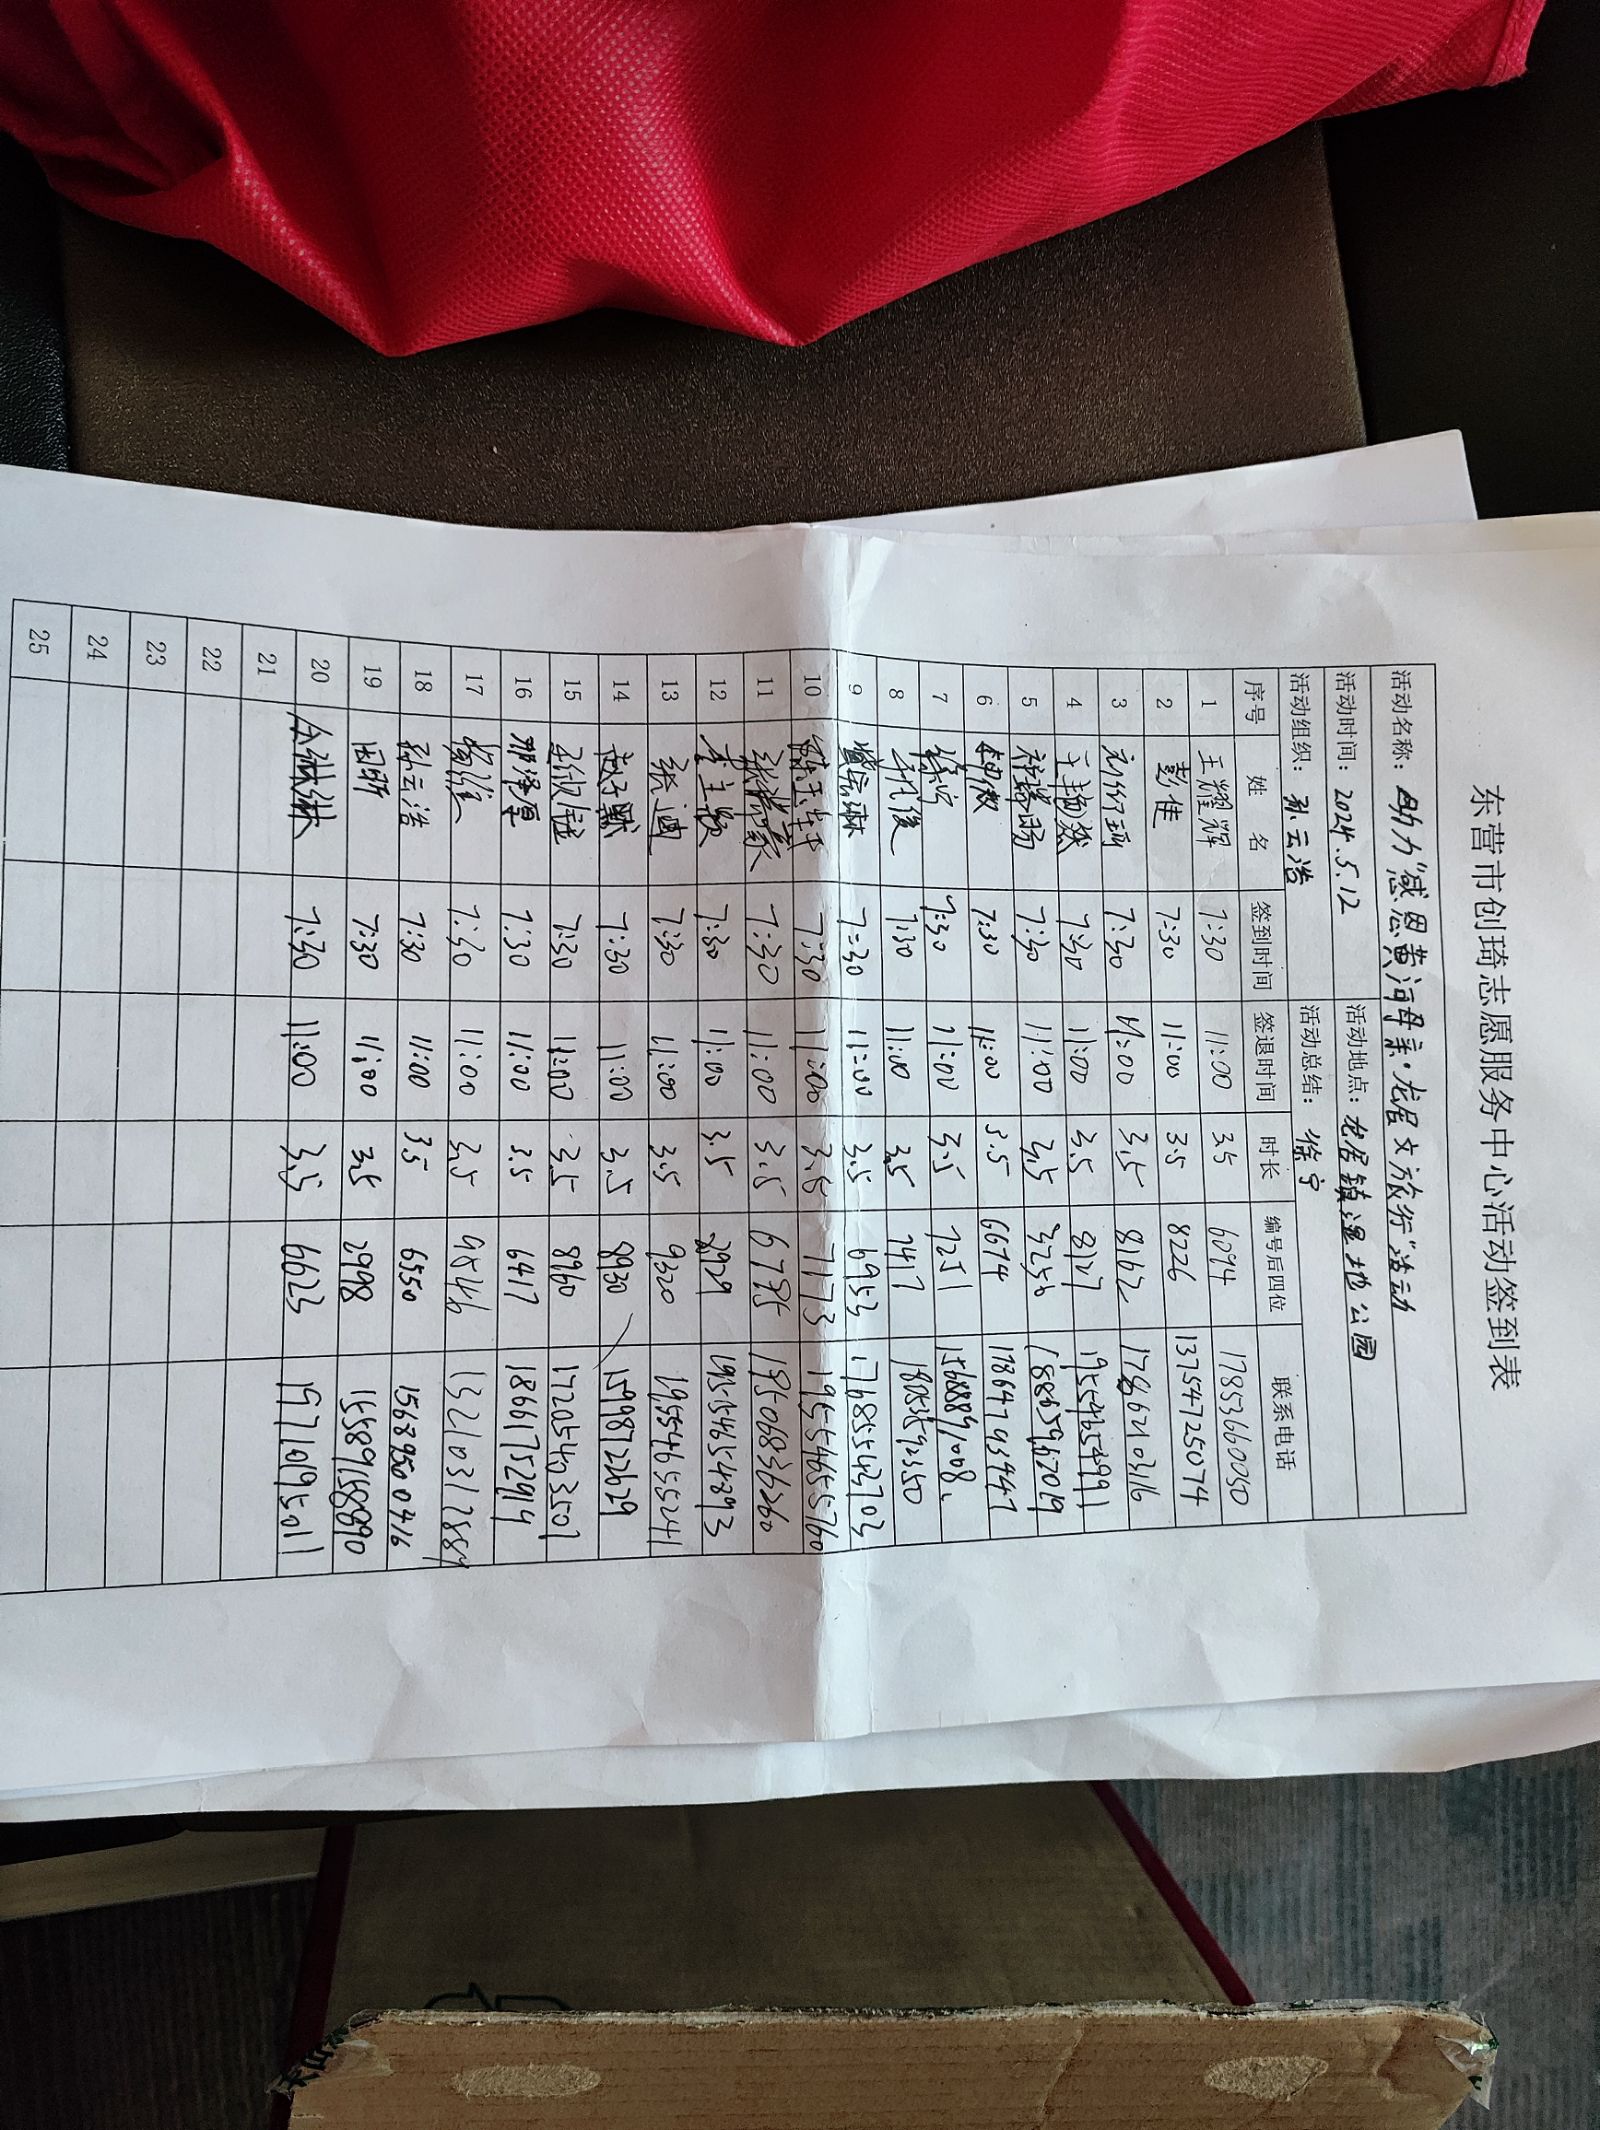 东营市创琦志愿服务中心活动签到表
活动名称：助力“感恩黄河母亲·龙居文旅行”活动
活动时间：2024.5.12 活动地点：龙居镇湿地公园
活动组织：孙云浩 活动总结：徐宁
序号 姓名 签到时间 签退时间 时长 编号后四位 联系电话
1 王耀辉 7:30 11:00 3.5 6094 17853660050
2 彭佳 7:30 11:00 3.5 8226 13754725074
3 7:30 11:00 3.5 8162 17866210316
4 7:30 11:00 3.5 8127 19554654991
5 7:30 11:00 3.5 3256 18865962019
6 7:30 11:00 3.5 6674 17864793447
7 徐宁 7:30 11:00 3.5 7251 15688891008
8 7:30 11:00 3.5 7417
9 7:30 11:00 3.5 6953 17685543703
10 7:30 11:00 3.5 7173 19554655760
11 7:30 11:00 3.5 6785 19506836260
12 7:30 11:00 3.5 2929 195154654893
13 张迪 7:30 11:00 3.5 9320 19554655241
14 赵子默 7:30 11:00 3.5 8930 15998722629
15 7:30 11:00 3.5 8960 17205403501
16 邢泽厚 7:30 11:00 3.5 6417 18661752914
17 7:30 11:00 3.5 9546
18 孙云浩 7:30 11:00 3.5 6550 15689500416
19 7:30 11:00 3.5 2998 15589158890
20 7:30 11:00 3.5 6623 19716195011
21
22
23
24
25